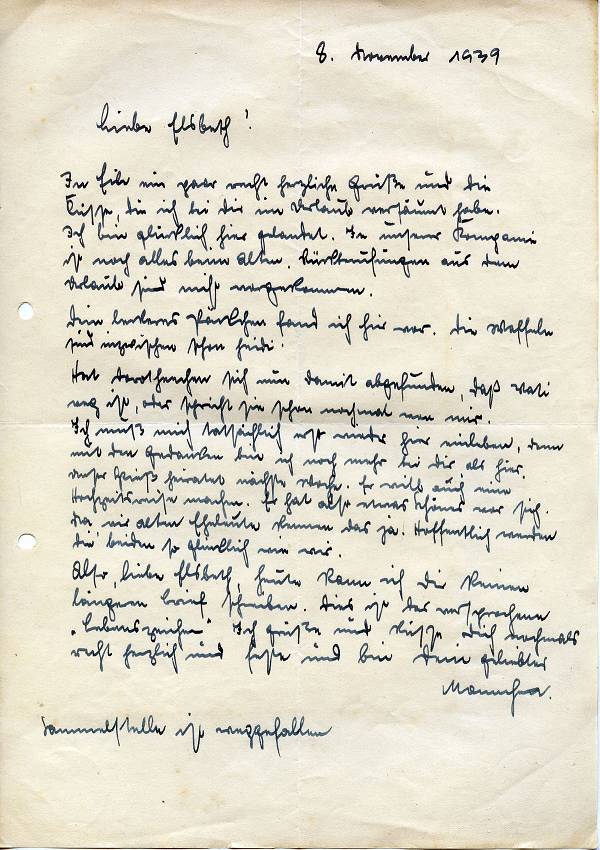 8. November 1939
Liebe Elsbeth!
In Eile ein paar recht herzliche Grüße und die
Küsse, die ich bei Dir im Urlaub versäumt habe.
Ich bin glücklich hier gelandet. In unserer Kompanie
ist noch alles beim Alten. Rückrufungen aus dem
Urlaub sind nicht vorgekommen.
Dein leckeres Päckchen fand ich hier vor. Die Waffeln
sind inzwischen schon heidi!
Hat Dorothenchen sich nun damit abgefunden, daß Vati
weg ist, oder spricht sie schon nochmal von mir.
Ich muß mich tatsächlich erst wieder hier einleben, denn
mit den Gedanken bin ich noch mehr bei Dir als hier.
Unser Spieß heiratet nächste Woche. Er will auch eine
Hochzeitsreise machen. Er hat also etwas Schönes vor sich.
Na, wir alten Eheleute kennen das ja. Hoffentlich werden
die beiden so glücklich wie wir.
Also, liebe Elsbeth, heute kann ich Dir keinen
längern Brief schreiben. Dies ist das versprochene
„Lebenszeichen“. Ich grüße und küsse Dich nochmals
recht herzlich und feste und bin Dein geliebter
Sammelstelle ist weggefallen